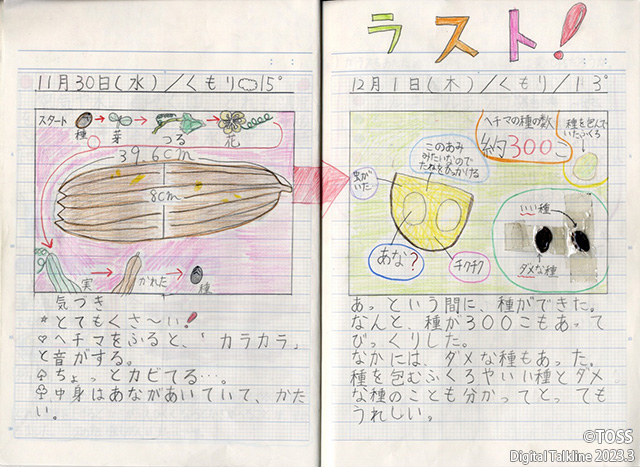 11月30日(水)/くもり 15°
スタート
種
芽
つる
花
39.6cm
8cm
実
かれた
種
気づき
*とてもくさ〜い!
♡ヘチマをふると、「カラカラ」
と音がする。
♧ちょっとカビてる…。
♧中身はあながあいていて、かた
い。
ラスト!
12月1日(木)/くもり/ 13°
ヘチマの種の数
約300こ
種を包んで
いたふくろ
このあみ
みたいなので
たねを
虫が
いた
あな?
チクチク
いい種
ダメな種
あっという間に、種ができた。
なんと、種が300こもあって
びっくりした。
なかには、ダメな種もあった。
種を包むふくろやいい種とダメ
な種のことも分かってとっても
うれしい。
©TOSS
Digital Talkline 2023.3